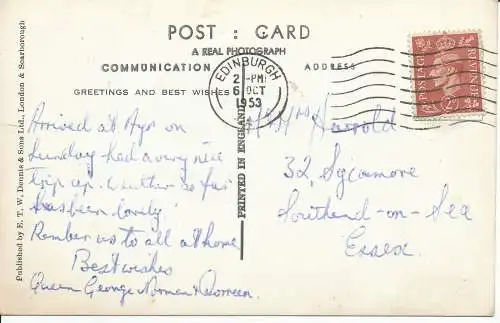 POST : CARD
A REAL PHOTOGRAPH
COMMUNICATION
ADDRESS
GREETINGS AND BEST WISHES
EDINBURGH
2 - PM
6 OCT
1953
POSTAGE
REVENUE
Published by E. T. W. Dennis & Sons Ltd., London & Scarborough
PRINTED IN ENGLAND
Arrived at Ayr on
Sunday had a very nice
trip up. Weather so far
has been lovely
Rember us to all at home
Best wishes
Queen George Norman & Doreen.
Harold
32, Sycamore
Southend-on-Sea
Essex.